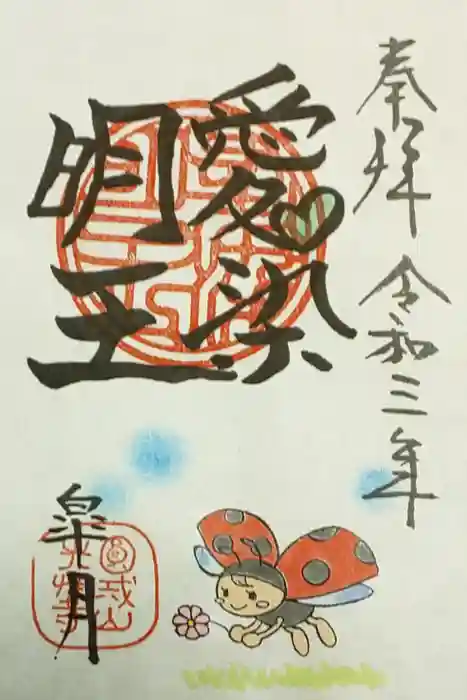 奉拝 令和三年
愛染
明王
皐月